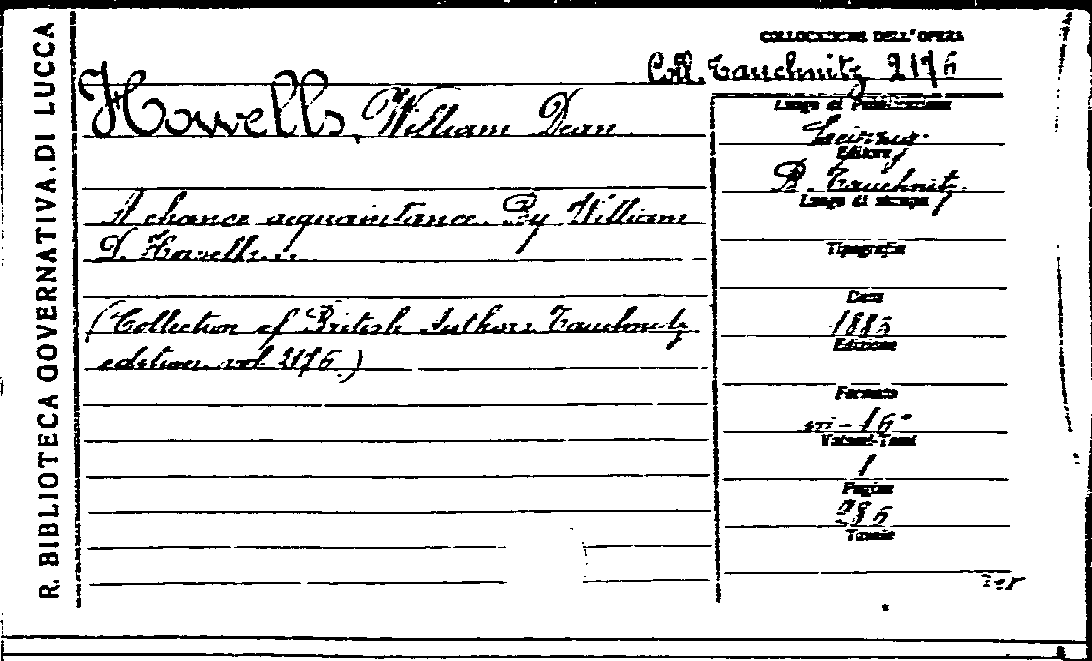 R. BIBLIOTECA GOVERNATIVA DI LUCCA
COLLOCAZIONE DELL'OPERA
Coll. Tauchnitz 2176
Howells, William Dean
A chance acquaintance. By William
D. Howells...
(Collection of British Authors Tauchnitz
edition. vol. 2176.)
Luogo di Pubblicazione
Leipzig
Editore
B. Tauchnitz.
Luogo di stampa
Tipografia
Data
Edizione
Formato
in-16°
Volumi-Tomi
1
Pagine
286
Tavole